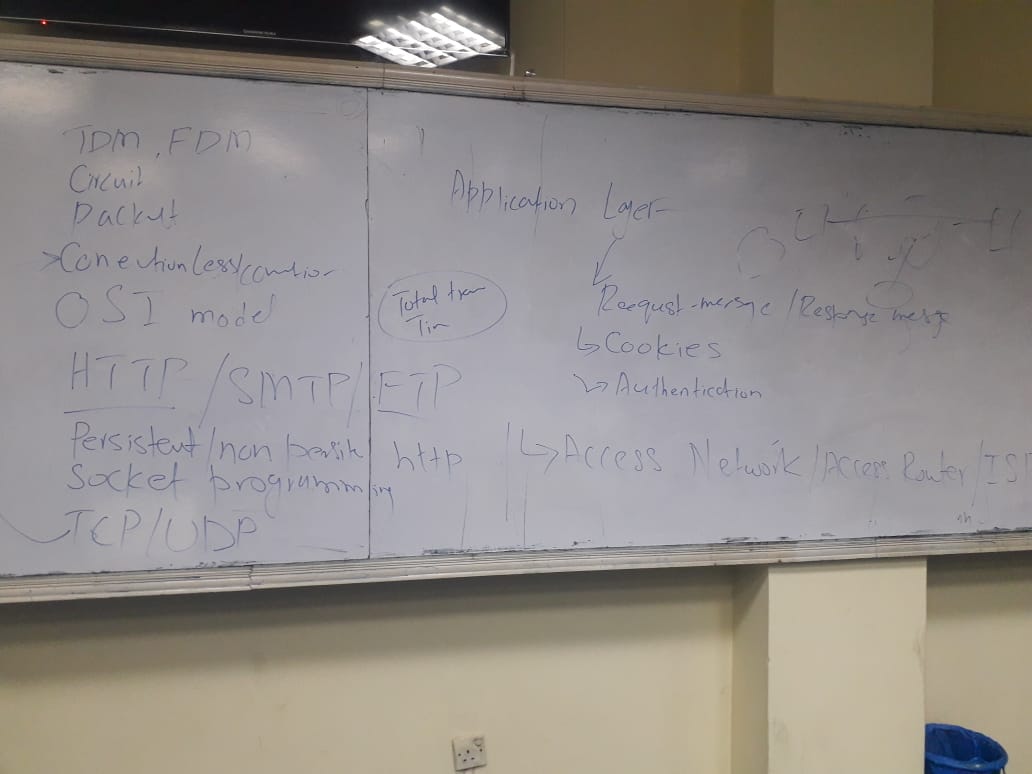 TDM, FDM
Circuit
Packet
Conectionless/conectio
OSI model
HTTP/SMTP/FTP
Persistent/non persite http
Socket programming
TCP/UDP
Total tran
Tim
Application Layer
Reequst-mersge/Response mesge
Cookies
Authentication
Access Network/Access Router/ISP